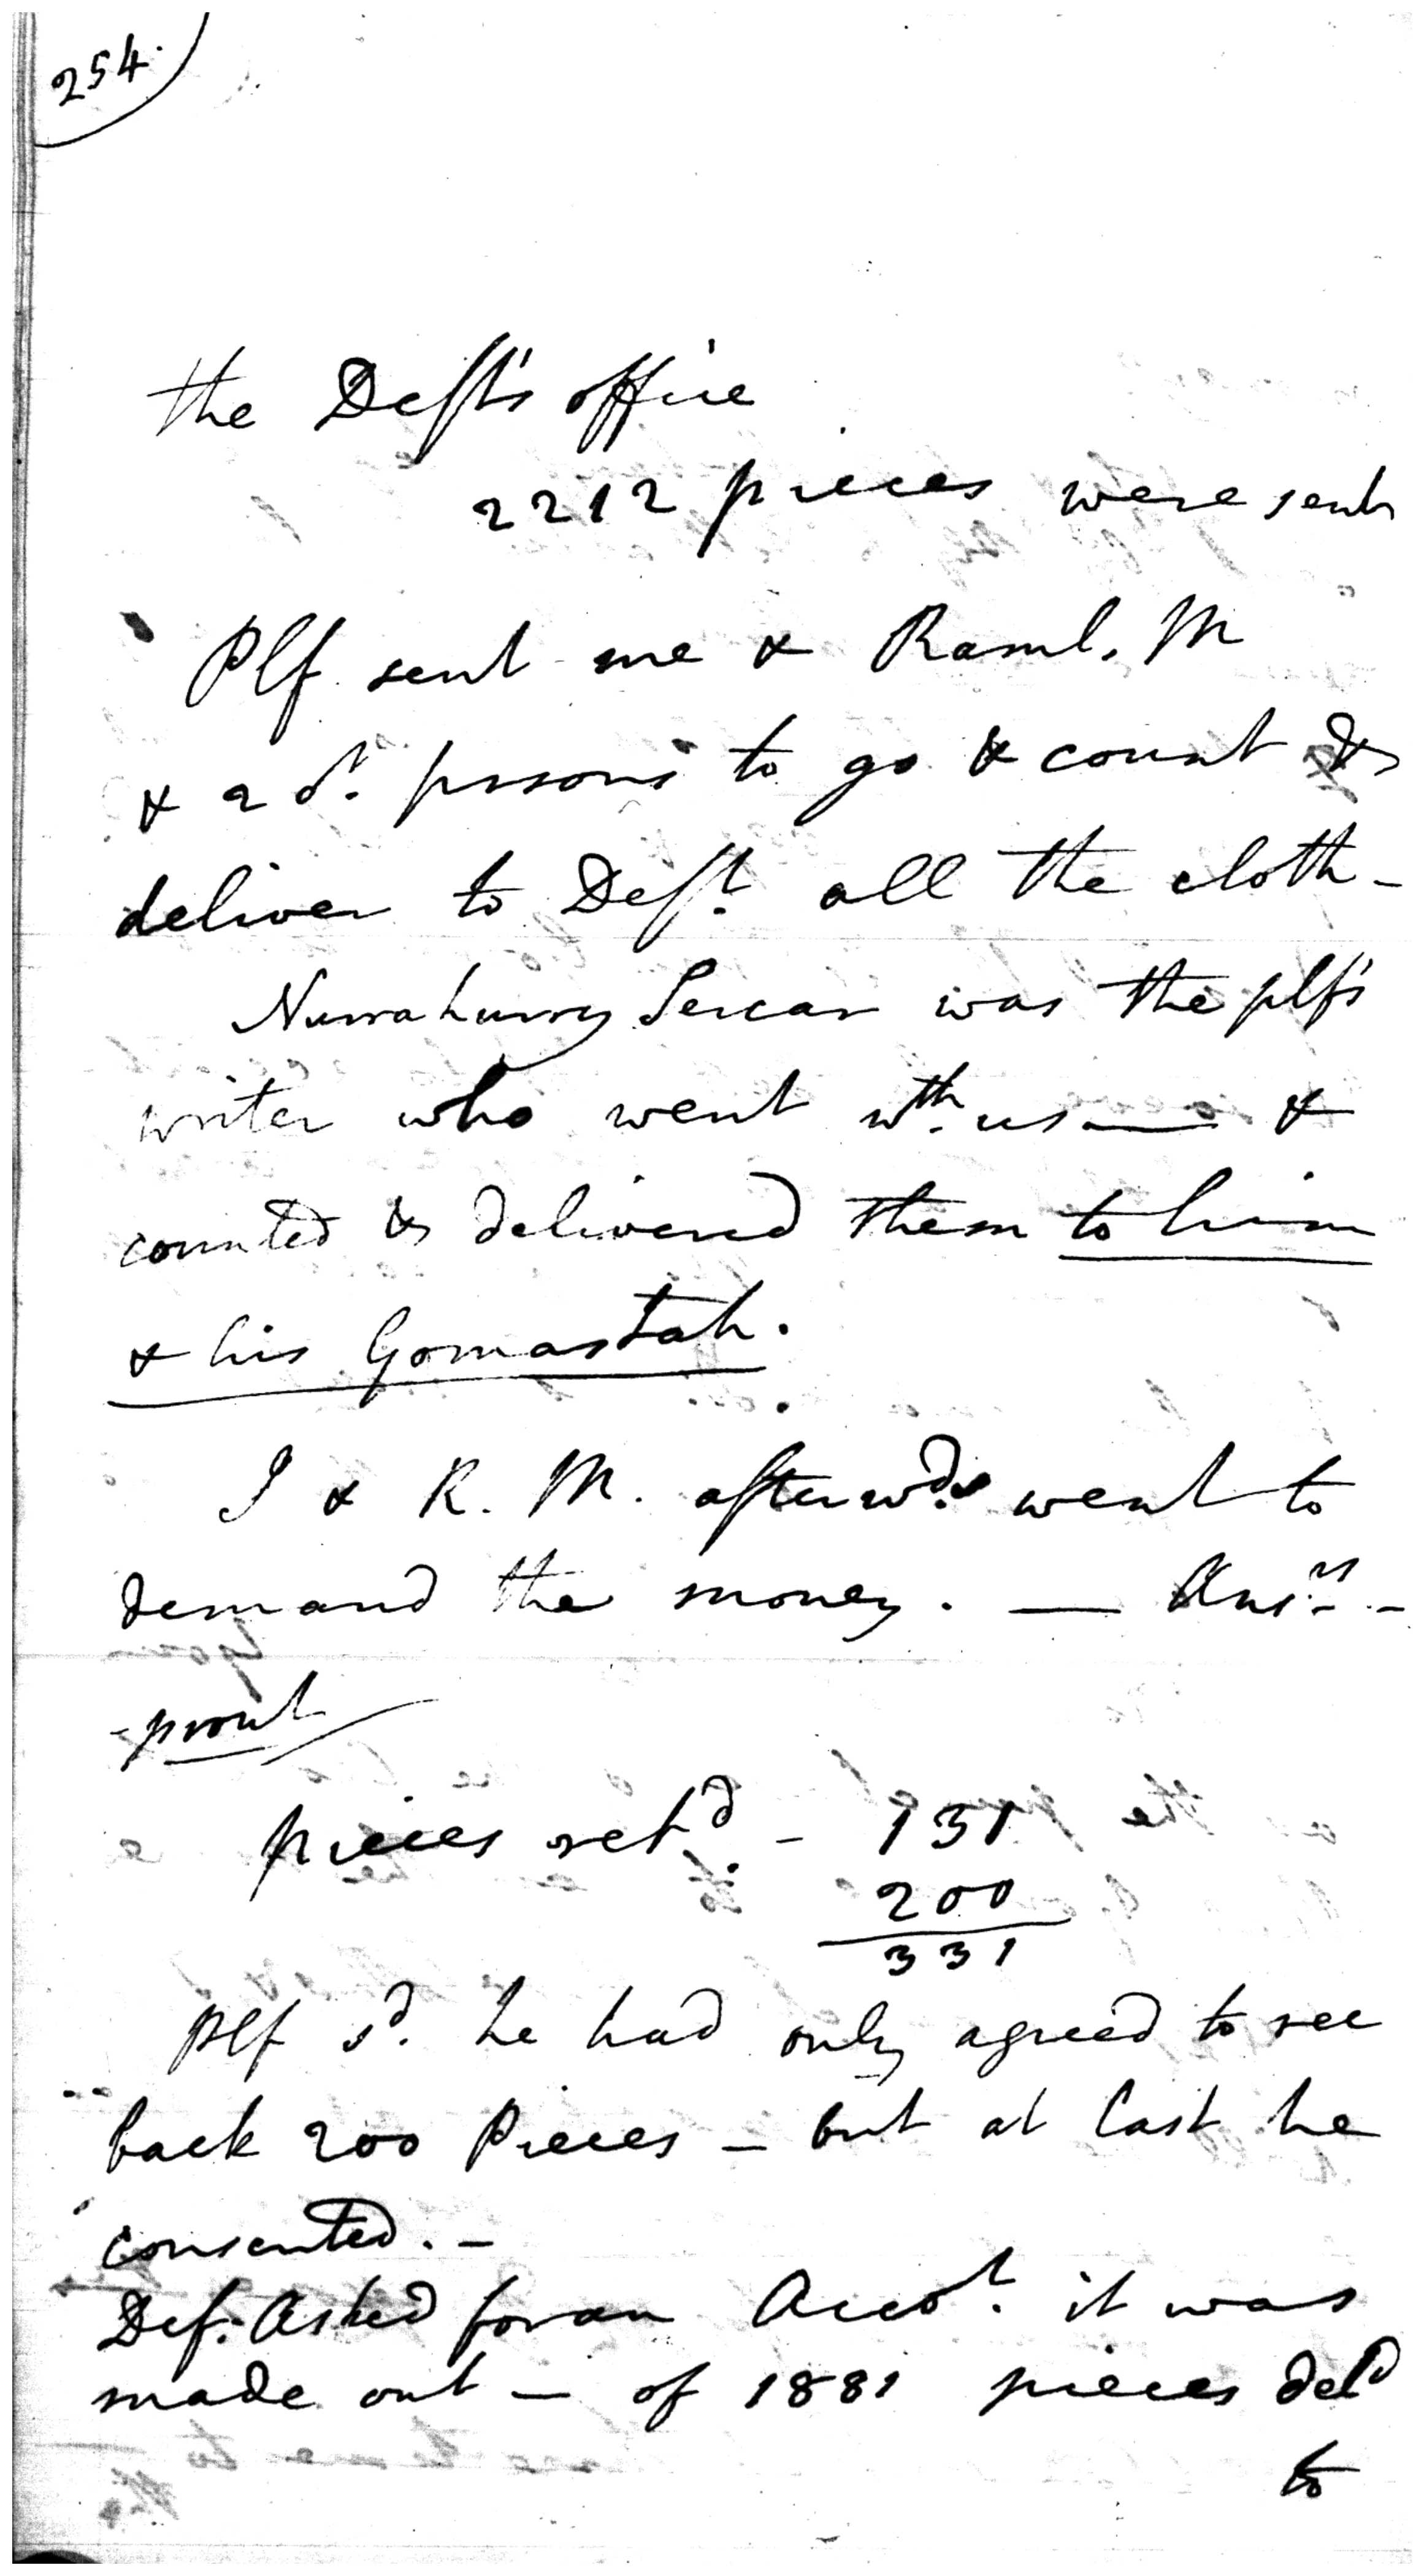 254.
the Deft's office
2212 pieces were sent
Plf. sent me & Raml. M
& 2 or persons to go & count &
deliver to Deft. all the cloth -
Nurrahurry Sercar was the plf's
writer who went wth. us — &
counted & delivered them to him
& his Gomastah.
I & R. M. afterwds. went to
demand the money. — Ansrs. -
- prout
pieces retd. - 131
200
331
Plf sd. he had only agreed to rec
back 200 Pieces - but at last he
consented. -
Def. Asked for an Accot. it was
made out - of 1881 pieces deld
to